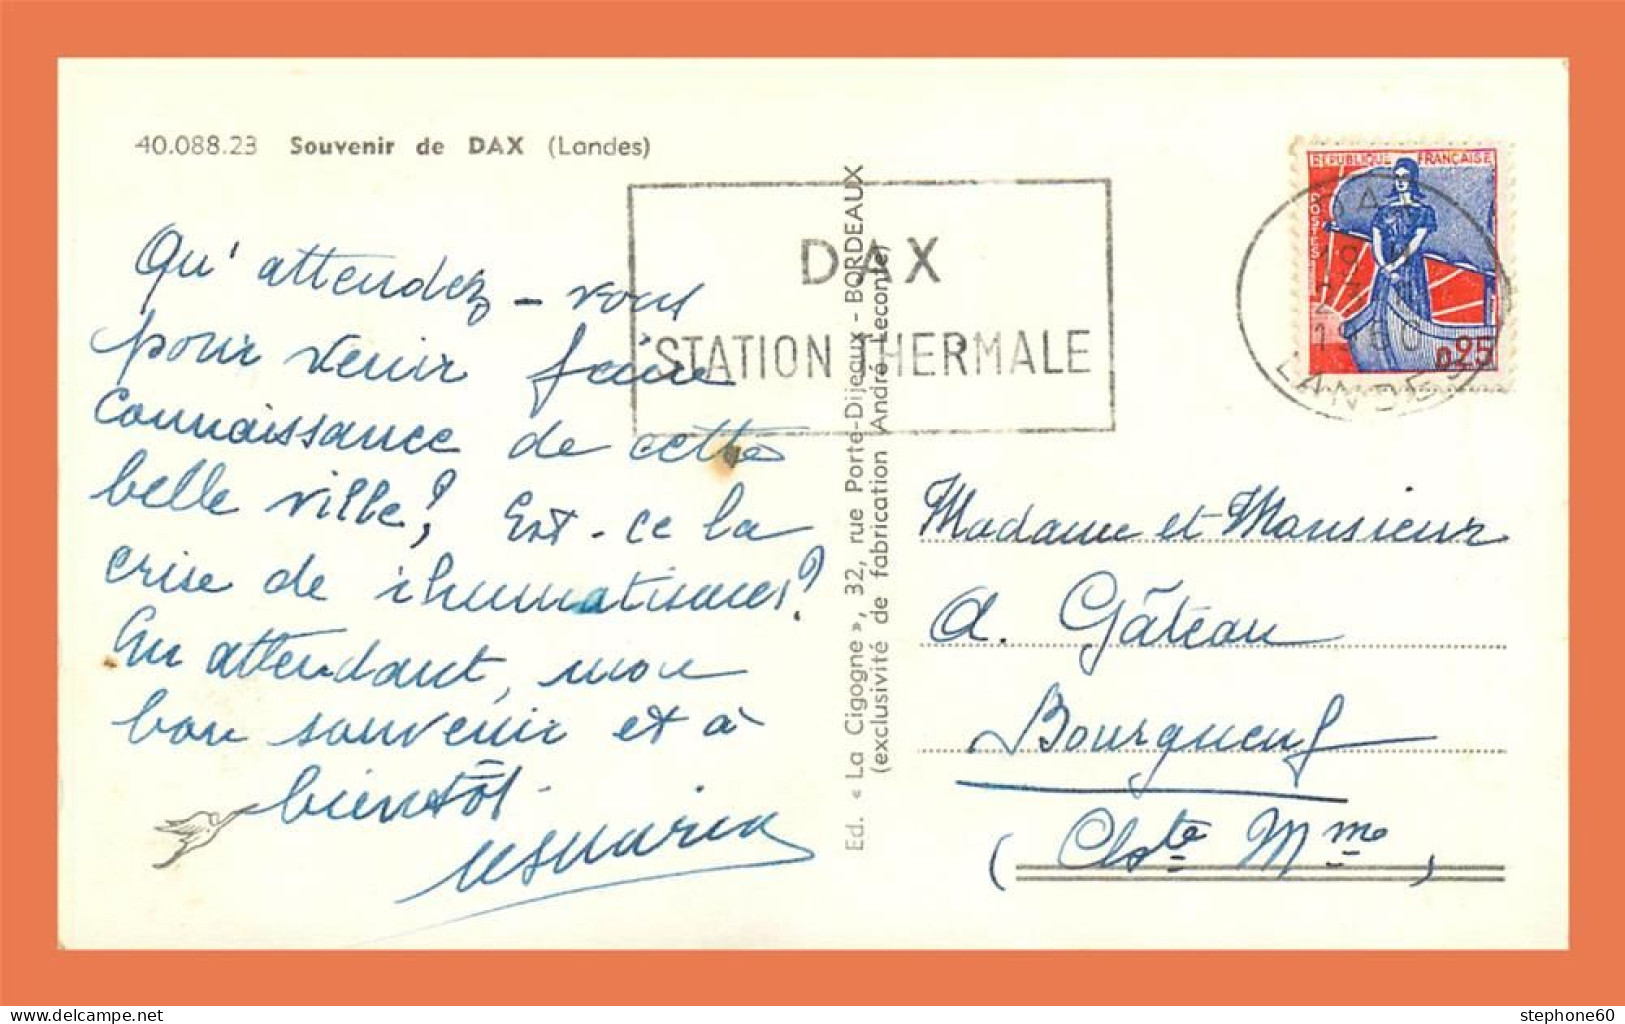 40.088.23 Souvenir de DAX (Landes)
Qu'attendez-vous
pour venir faire
connaissance de cette
belle ville? Est-ce la
crise de rhumatismes?
En attendant, mon
bon souvenir et à
bientôt.
DAX
STATION THERMALE
Ed. « La Cigogne », 32, rue Porte-Dijeaux - BORDEAUX
(exclusivité de fabrication André Leconte)
REPUBLIQUE FRANÇAISE
POSTES
0,25
DAX
1960
LANDES
Madame et Monsieur
A. Gâteau
Bourgueuf
(Chste Mme)
www.delcampe.net
stephone60